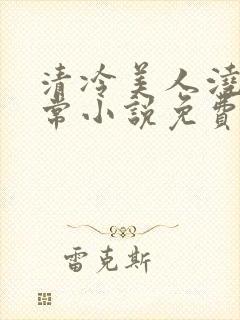 清冷美人澆
常小說免費
雷克斯